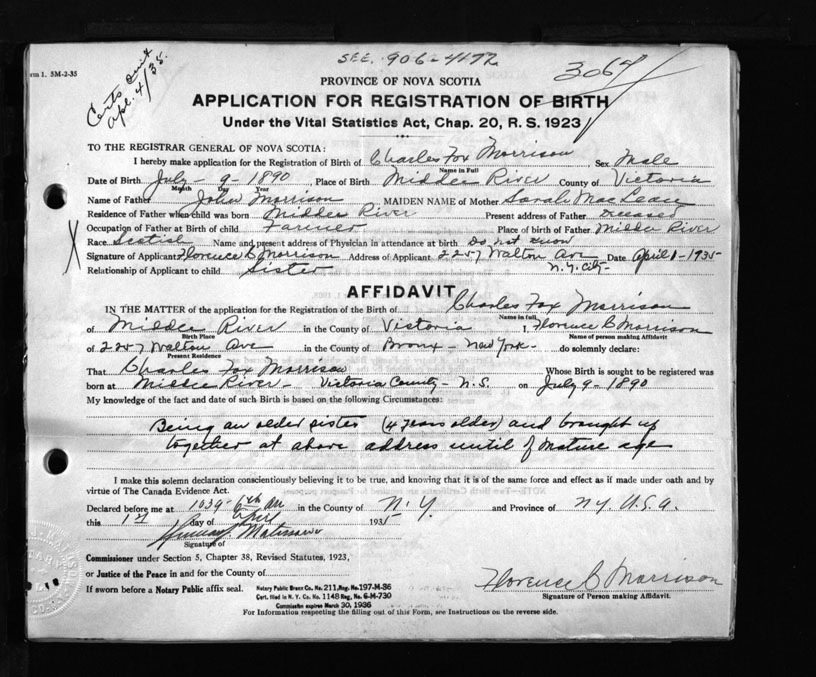 SEE. 906-4172
3064
Certs Sent
Apl. 4/35.
Form 1. 5M-2-35
PROVINCE OF NOVA SCOTIA
APPLICATION FOR REGISTRATION OF BIRTH
Under the Vital Statistics Act, Chap. 20, R. S. 1923
TO THE REGISTRAR GENERAL OF NOVA SCOTIA:
I hereby make application for the Registration of Birth of Charles Fox Morrison Sex Male
Name in Full
Date of Birth July - 9 - 1890 Place of Birth Middle River County of Victoria
Month Day Year
Name of Father John Morrison MAIDEN NAME of Mother Sarah MacLean
Residence of Father when child was born Middle River Present address of Father Deceased
Occupation of Father at Birth of child Farmer Place of birth of Father Middle River
Race Scotish Name and present address of Physician in attendance at birth Do not know
X Signature of Applicant Florence C Morrison Address of Applicant 2257 Walton Ave Date April 1 - 1935
Relationship of Applicant to child Sister N.Y. City-
AFFIDAVIT
IN THE MATTER of the application for the Registration of Birth of Charles Fox Morrison
Name in full.
of Middle River in the County of Victoria I, Florence C Morrison
Birth Place Name of person making Affidavit
of 2257 Walton Ave in the County of Bronx - New York - do solemnly declare:
Present Residence
That Charles Fox Morrison Whose Birth is sought to be registered was
born at Middle River - Victoria County - N.S. on July 9 - 1890
My knowledge of the fact and date of such Birth is based on the following Circumstances:
Being an older sister (4 years older) and brought up
together at above address until of mature age
I make this solemn declaration conscientiously believing it to be true, and knowing that it is of the same force and effect as if made under oath and by
virtue of The Canada Evidence Act.
Declared before me at 1039 - 6th Av in the County of N.Y. and Province of N.Y. U.S.A.
this 1st day of April 1935
Signature of
Commissioner under Section 5, Chapter 38, Revised Statutes, 1923,
or Justice of the Peace in and for the County of
Florence C Morrison
If sworn before a Notary Public affix seal. Notary Public Bronx Co. No. 211, Reg. No. 197-M-36 Signature of Person making Affidavit.
Cert. filed in N. Y. Co. No. 1148 Reg. No. 6-M-730
Commission expires March 30, 1936
For Information respecting the filling out of this Form, see Instructions on the reverse side.